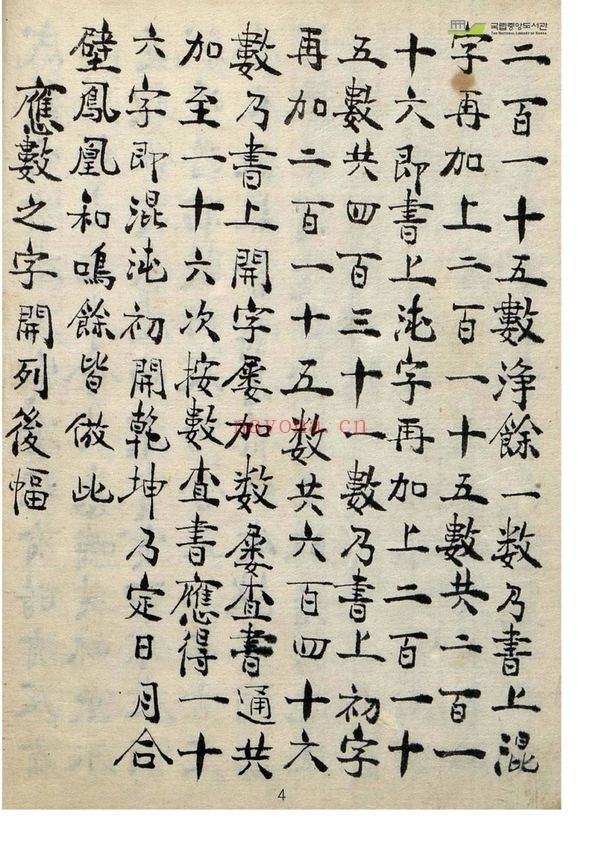 국립중앙도서관
THE NATIONAL LIBRARY OF KOREA
二百一十五數淨餘一数乃書上混
字再加上二百一十五數共二百一
十六即書上沌字再加上二百一十
五數共四百三十一數乃書上初字
再加二百一十五数共六百四十六
數乃書上開字屡加数屡查書通共
加至一十六次按數查書應得一十
六字即混沌初開乾坤乃定日月合
壁鳳凰和鳴餘皆倣此
應數之字開列後幅
nayona.cn
4